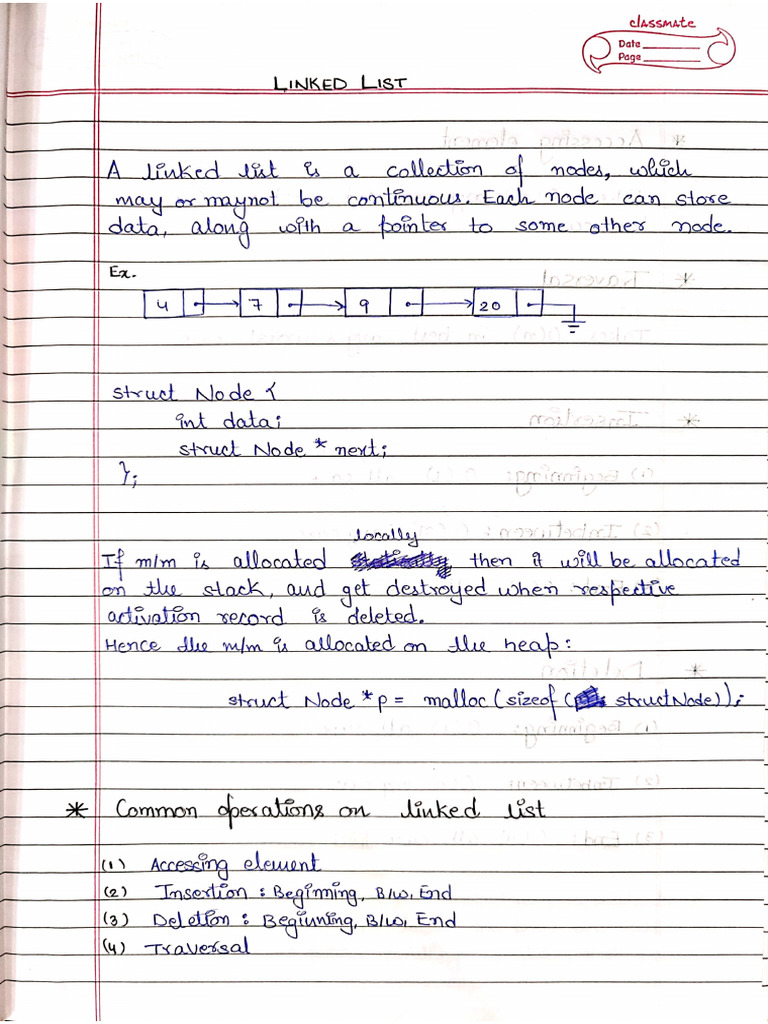 classmate
Date
Page
LINKED LIST
A linked list is a collection of nodes, which
may or maynot be continuous. Each node can store
data, along with a pointer to some other node.
Ex.
4 7 9 20
struct Node {
int data;
struct Node * next;
};
locally
If m/m is allocated then it will be allocated
on the stack, and get destroyed when respective
activation record is deleted.
Hence the m/m is allocated on the heap:
struct Node *p = malloc (sizeof ( struct Node));
* Common operations on linked list
(1) Accessing element
(2) Insertion : Beginning, B/w, End
(3) Deletion : Beginning, B/w, End
(4) Traversal